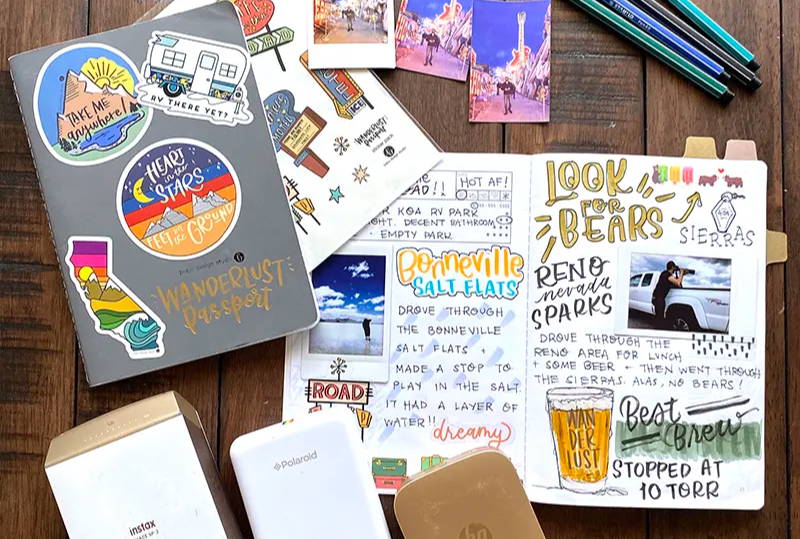 TAKE ME
anywhere!
RV THERE YET?
HEART
in the
STARS
FEET on the
GROUND
paper design studio
WANDERLUST
Passport
ICE
WANDERLUST
Passport
HOT AF!
KOA RV PARK
DECENT BATHROOM
• EMPTY PARK
Bonneville
SALT FLATS
DROVE THROUGH
THE BONNEVILLE
SALT FLATS +
MADE A STOP TO
PLAY IN THE SALT
IT HAD A LAYER OF
WATER!!
dreamy
ROAD
LOOK
FOR
BEARS
SIERRAS
RENO
nevada
SPARKS
DROVE THROUGH THE
RENO AREA FOR LUNCH
+ SOME BEER + THEN WENT THROUGH
THE SIERRAS. ALAS, NO BEARS!
WAN
DER
LUST
Best
Brew
STOPPED AT
10 TORR
instax
SHARE SP-2
Polaroid
hp